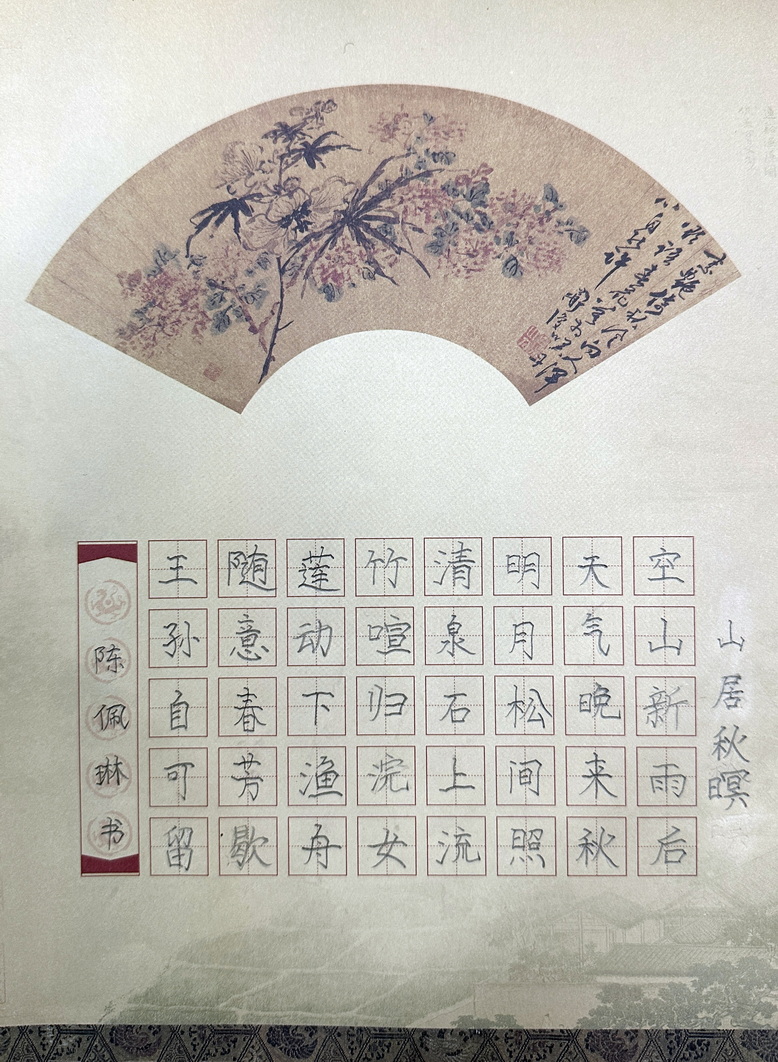 山居秋暝
空山新雨后
天气晚来秋
明月松间照
清泉石上流
竹喧归浣女
莲动下渔舟
随意春芳歇
王孙自可留
陈佩琳书